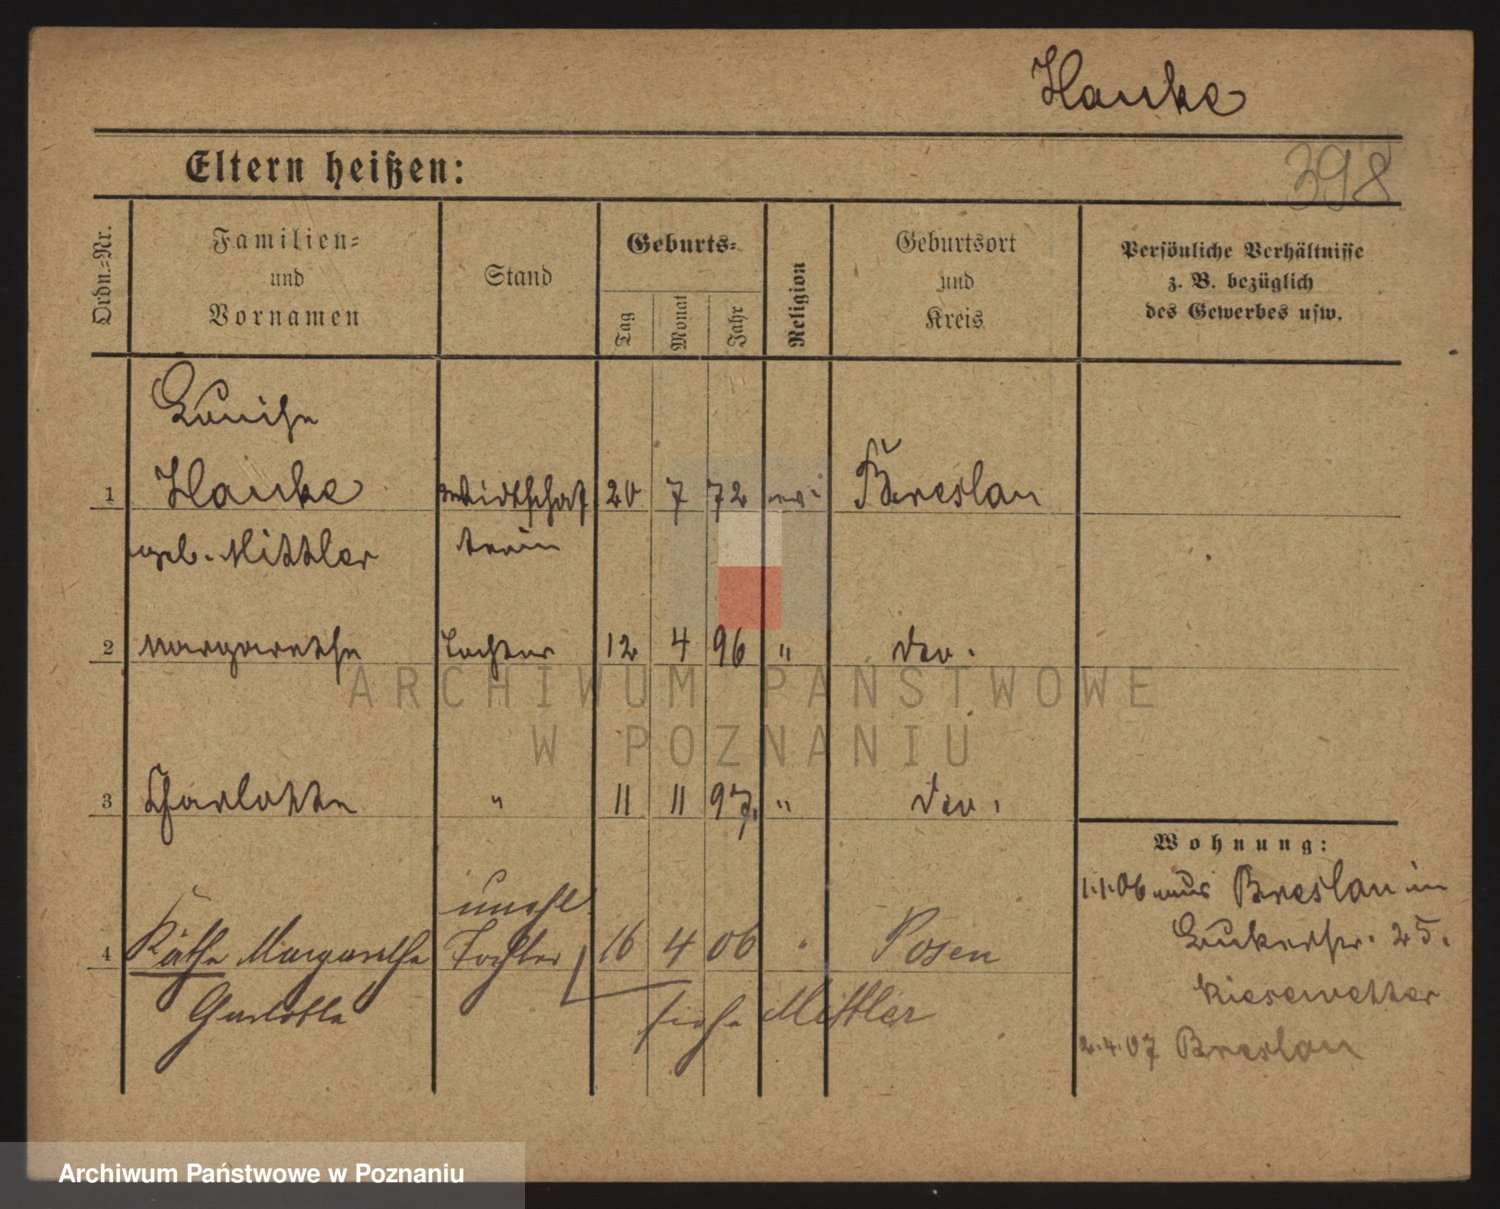 Hauke
Eltern heißen:
398
Ordn.=Nr.
Familien=
und
Vornamen
Stand
Geburts=
Tag
Monat
Jahr
Religion
Geburtsort
und
Kreis
Persönliche Verhältnisse
z. B. bezüglich
des Gewerbes usw.
Louise
1 Hauke Wirtschaf 20 7 72 Breslau
geb. Mittler terin
2 Margarethe Tochter 12 4 96 " dto.
3 Charlotte " 11 11 97. " dto.
Wohnung:
1.1.06 aus Breslau in
25.
Kiesewetter
2.4.07 Breslau
unehl.
4 Käthe Margarethe Tochter 16 4 06 " Posen
Charlotte siehe Mittler
ARCHIWUM PAŃSTWOWE
W POZNANIU
Archiwum Państwowe w Poznaniu